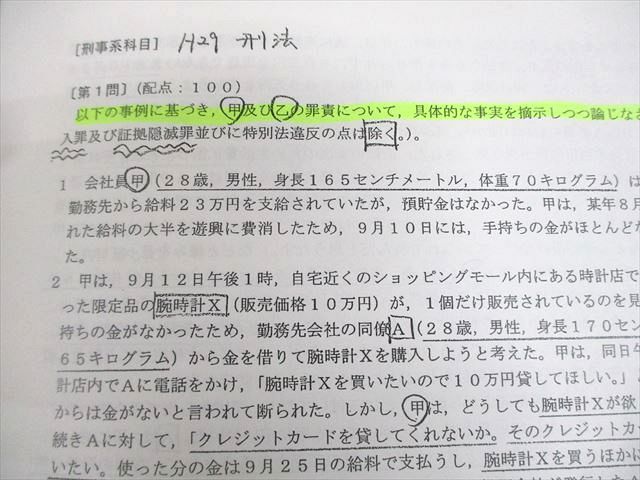 [刑事系科目] H29 刑法
[第1問](配点:100)
以下の事例に基づき,甲及び乙の罪責について,具体的な事実を摘示しつつ論じなさ
入罪及び証拠隠滅罪並びに特別法違反の点は除く。)。
1 会社員甲(28歳,男性,身長165センチメートル,体重70キログラム)は
勤務先から給料23万円を支給されていたが,預貯金はなかった。甲は,某年8月
れた給料の大半を遊興に費消したため,9月10日には,手持ちの金がほとんどな
た。
2 甲は,9月12日午後1時,自宅近くのショッピングモール内にある時計店で
った限定品の腕時計X(販売価格10万円)が,1個だけ販売されているのを見
持ちの金がなかったため,勤務先会社の同僚A(28歳,男性,身長170セン
65キログラム)から金を借りて腕時計Xを購入しようと考えた。甲は,同日午
計店内でAに電話をかけ,「腕時計Xを買いたいので10万円貸してほしい。」
からは金がないと言われて断られた。しかし,甲は,どうしても腕時計Xが欲
続きAに対して,「クレジットカードを貸してくれないか。そのクレジットカー
いたい。使った分の金は9月25日の給料で支払うし,腕時計Xを買うほかに